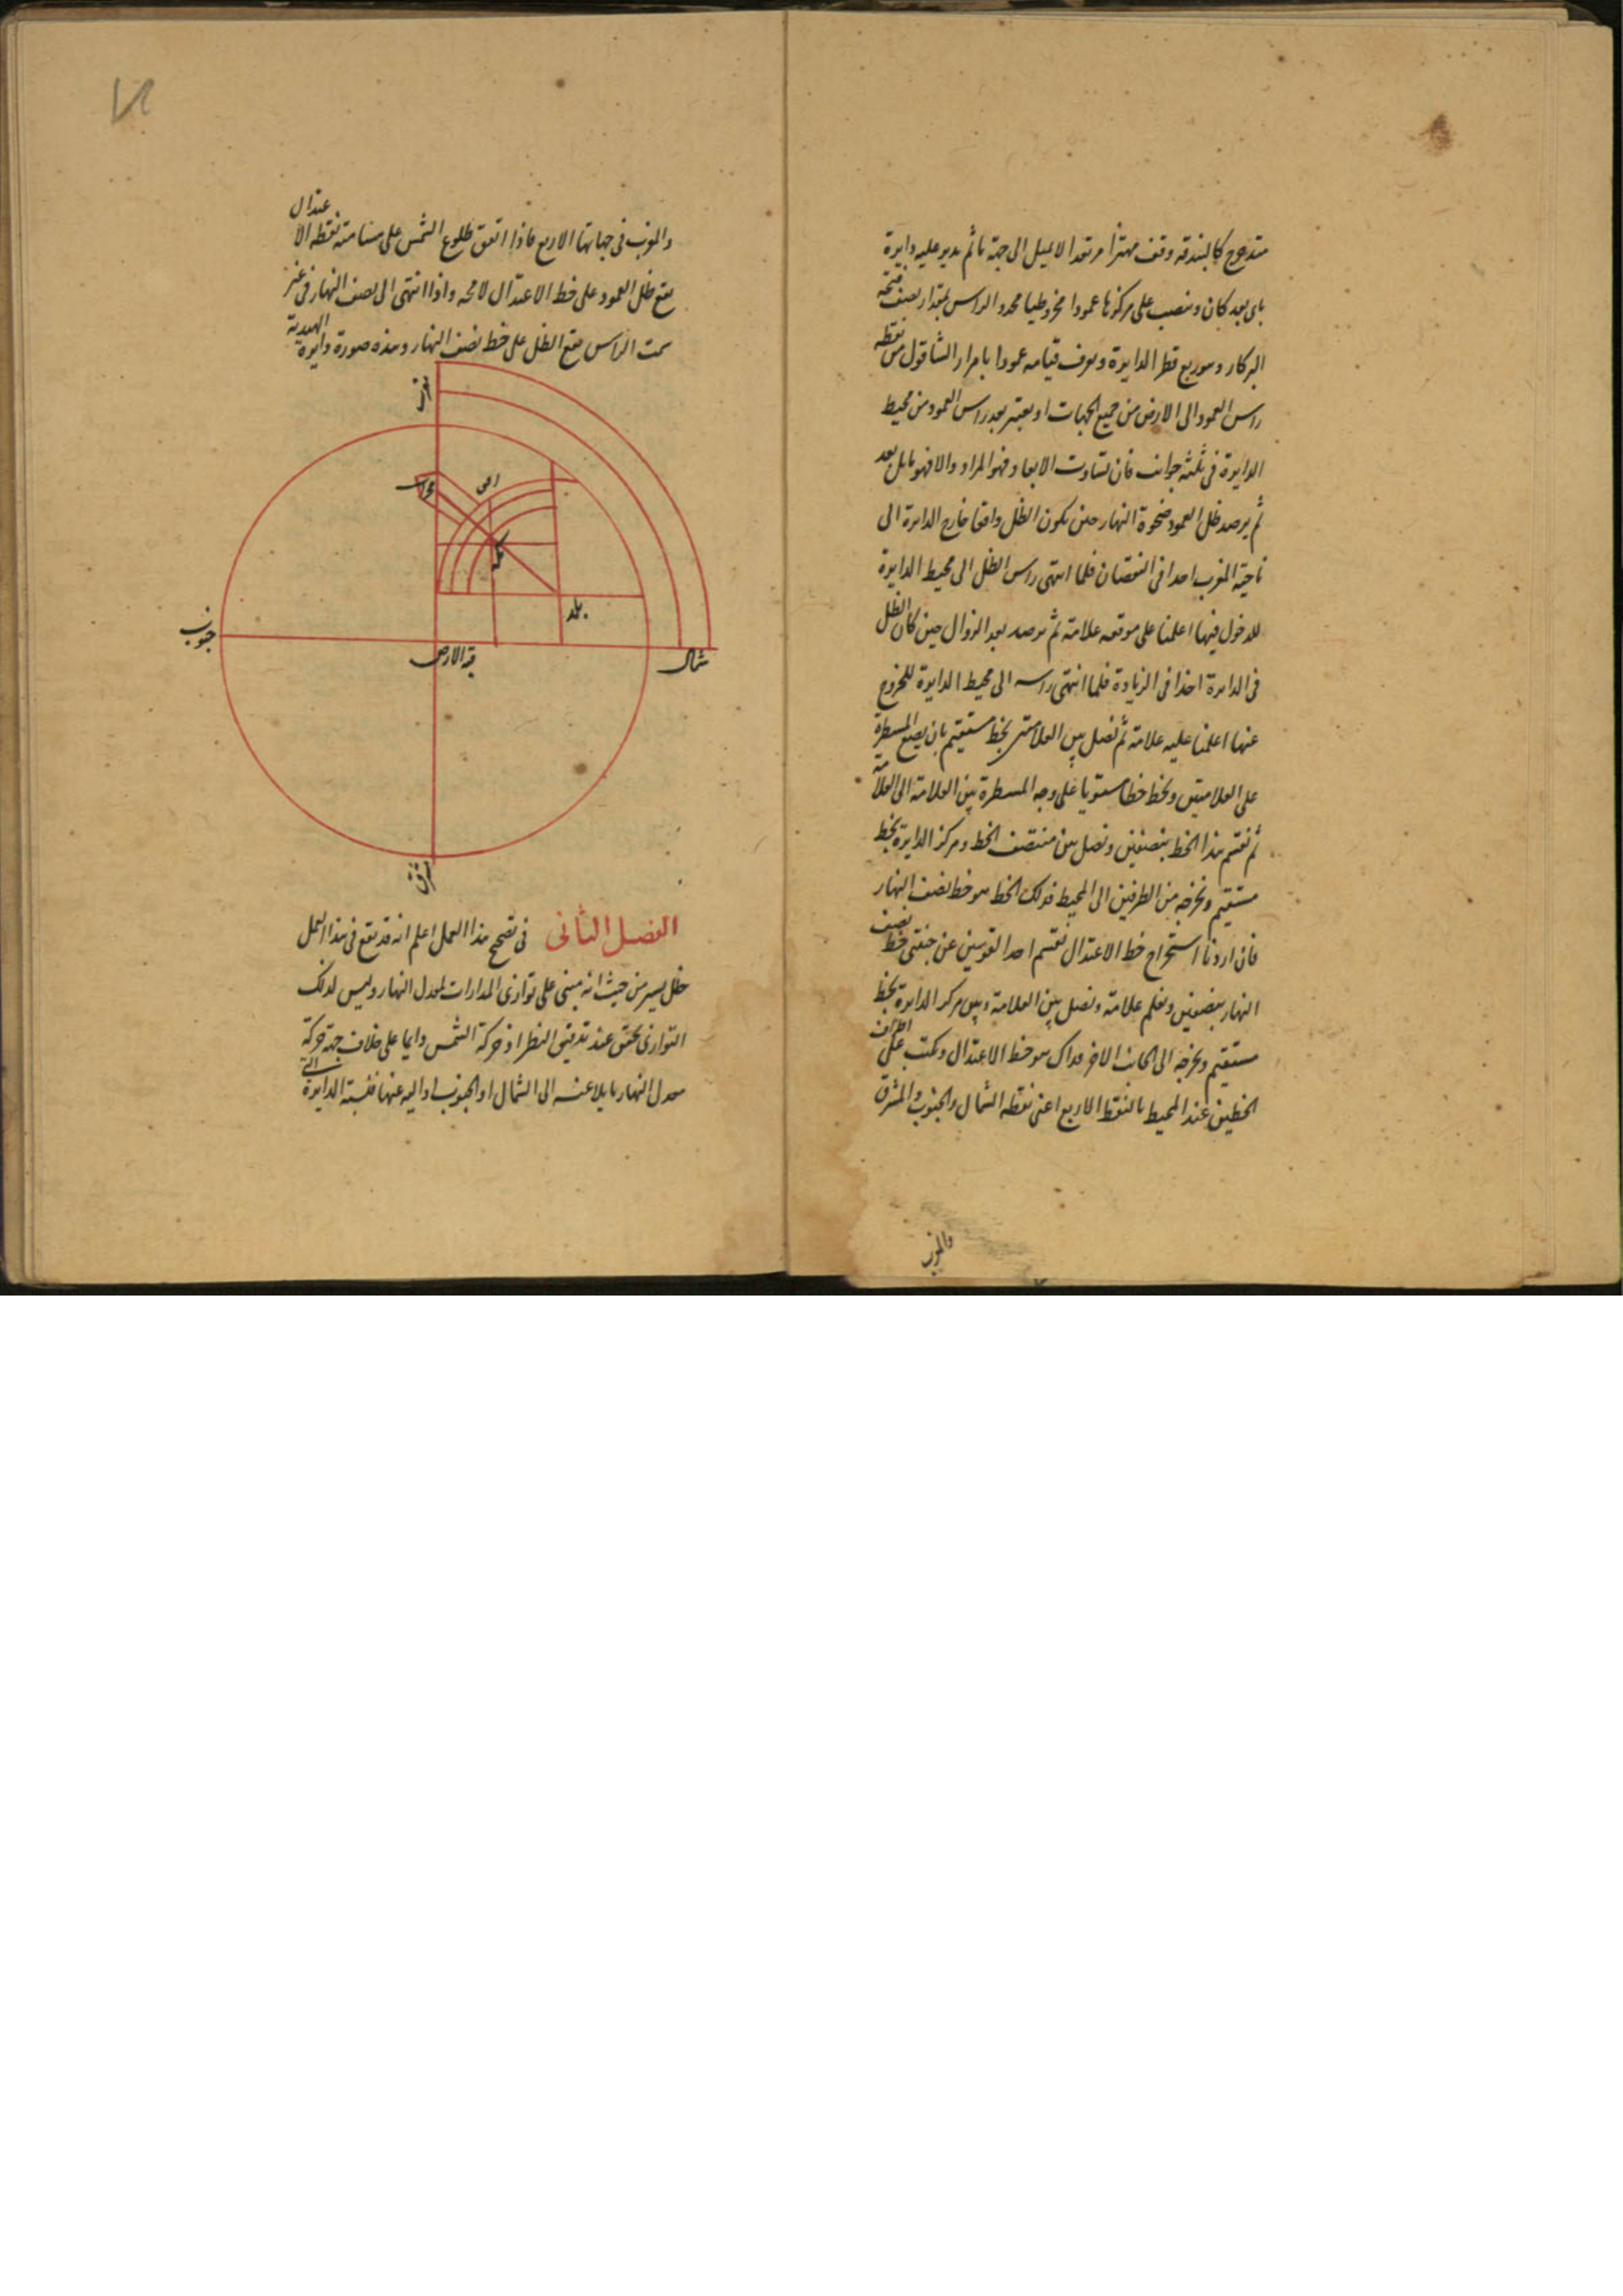 متدحرج كالبندقة وقف مهتزا مرتعدا لا يميل الى جهة ما ثم ندير عليه دايرة
باى بعد كان وننصب على مركزها عمودا مخروطيا محدد الراس بمقدار نصف فتحة
البركار وهو ربع قطر الدايرة ويعرف قيامه عمودا بامرار الشاقول من نقطة
راس العمود الى الارض من جميع الجهات او يعتبر بعد راس العمود من محيط
الدايرة فى ثلثة جوانب فان تساوت الابعاد فهو المراد والا فهو مايل بعد
ثم يرصد ظل العمود ضحوة النهار حين يكون الظل واقعا خارج الدايرة الى
ناحية المغرب اخذا فى النقصان فلما انتهى راس الظل الى محيط الدايرة
للدخول فيها اعلمنا على موقعه علامة ثم نرصد بعد الزوال حين كان الظل
فى الدايرة اخذا فى الزيادة فلما انتهى راسه الى محيط الدايرة للخروج
عنها اعلمنا عليه علامة ثم نصل بين العلامتين بخط مستقيم بان يضع المسطرة
على العلامتين ونخط خطا مستويا على وجه المسطرة بين العلامة الى العلامة
ثم نقسم هذا الخط بنصفين ونصل بين منتصف الخط ومركز الدايرة بخط
مستقيم ونخرجه من الطرفين الى المحيط فذلك الخط هو خط نصف النهار
فان اردنا استخراج خط الاعتدال نقسم احد القوسين عن جنبتى خط نصف
النهار بنصفين ونعلم علامة ونصل بين العلامة وبين مركز الدايرة بخط
مستقيم ونخرجه الى الجانب الاخر فذاك هو خط الاعتدال ونكتب على اطراف
الخطين عند المحيط بالنقط الاربع اعنى نقطة الشمال والجنوب والمشرق
والمغرب
والمغرب فى جهاتها الاربع فاذا اتفق طلوع الشمس على مسامتة نقطة الاعتدال
يقع ظل العمود على خط الاعتدال لا محه واذا انتهى الى نصف النهار فى غير
سمت الراس يقع الظل على خط نصف النهار وهذه صورة دايرة الهندية
مغرب
محراب
مكه
بلد
جنوب
قبة الارض
شمال
مشرق
الفصل الثانى فى تصحيح هذا العمل اعلم انه قد يقع فى هذا العمل
خلل يسير من حيث انه مبنى على توازى المدارات لمعدل النهار وليس لذلك
التوازى تحقق عند تدقيق النظر اذ حركة الشمس دايما على خلاف جهة حركة
معدل النهار مايلا عنه الى الشمال او الجنوب او اليه عنها فنسبة الدايرة